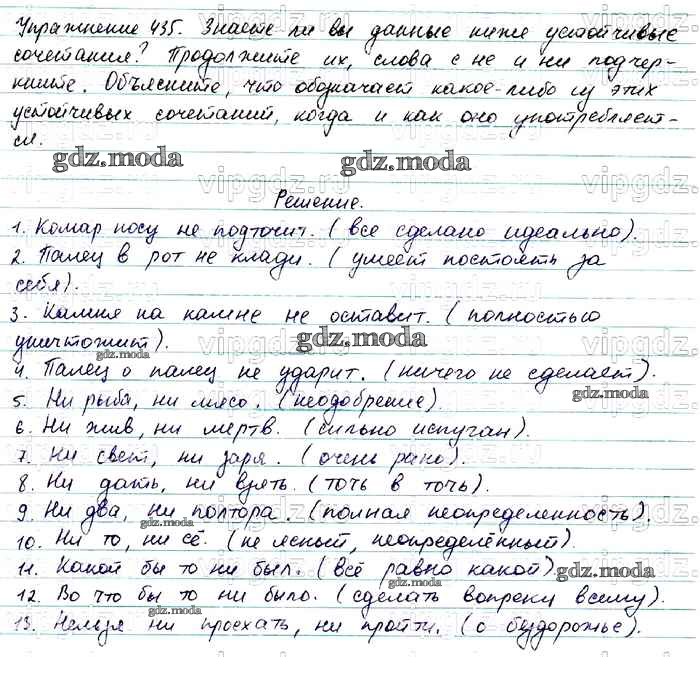 Упражнение 435. Знаете ли вы данные ниже устойчивые
сочетания? Продолжите их, слова с не и ни подчер-
кните. Объясните, что обозначает какое-либо из этих
устойчивых сочетаний, когда и как оно употребляет-
ся.
gdz.moda gdz.moda
Решение.
1. Комар носу не подточит. (всё сделано идеально).
2. Палец в рот не клади. (умеет постоять за
себя).
3. Камня на камне не оставит. (полностью
уничтожит).
gdz.moda gdz.moda
4. Палец о палец не ударит. (ничего не сделает).
gdz.moda
5. Ни рыба, ни мясо. (неодобрение).
6. Ни жив, ни мертв. (сильно испуган).
7. Ни свет, ни заря. (очень рано).
8. Ни дать, ни взять. (точь в точь).
9. Ни два, ни полтора. (полная неопределенность).
gdz.moda
10. Ни то, ни сё. (не ясный, неопределённый).
11. Какой бы то ни был. (всё равно какой).
gdz.moda gdz.moda
12. Во что бы то ни было. (сделать вопреки всему).
gdz.moda
13. Нельзя ни проехать, ни пройти. (о бездорожье).